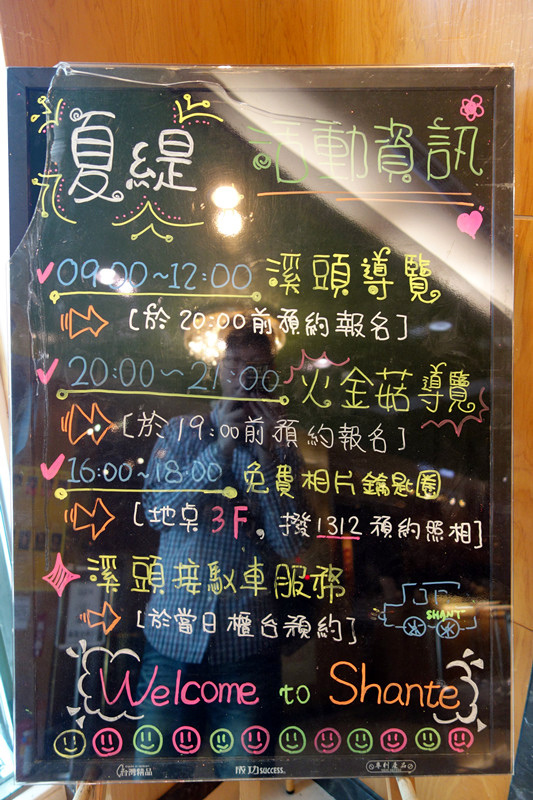 夏緹 活動資訊
09:00~12:00 溪頭導覽
[於 20:00前預約報名]
20:00~21:00 火金菇導覽
[於 19:00前預約報名]
16:00~18:00 免費相片鑰匙圈
[地桌 3F, 撥1312 預約照相]
溪頭接駁車服務
[於當日櫃台預約]
SHANT
Welcome to Shante
台灣精品 成功 SUCCESS. 專利產品